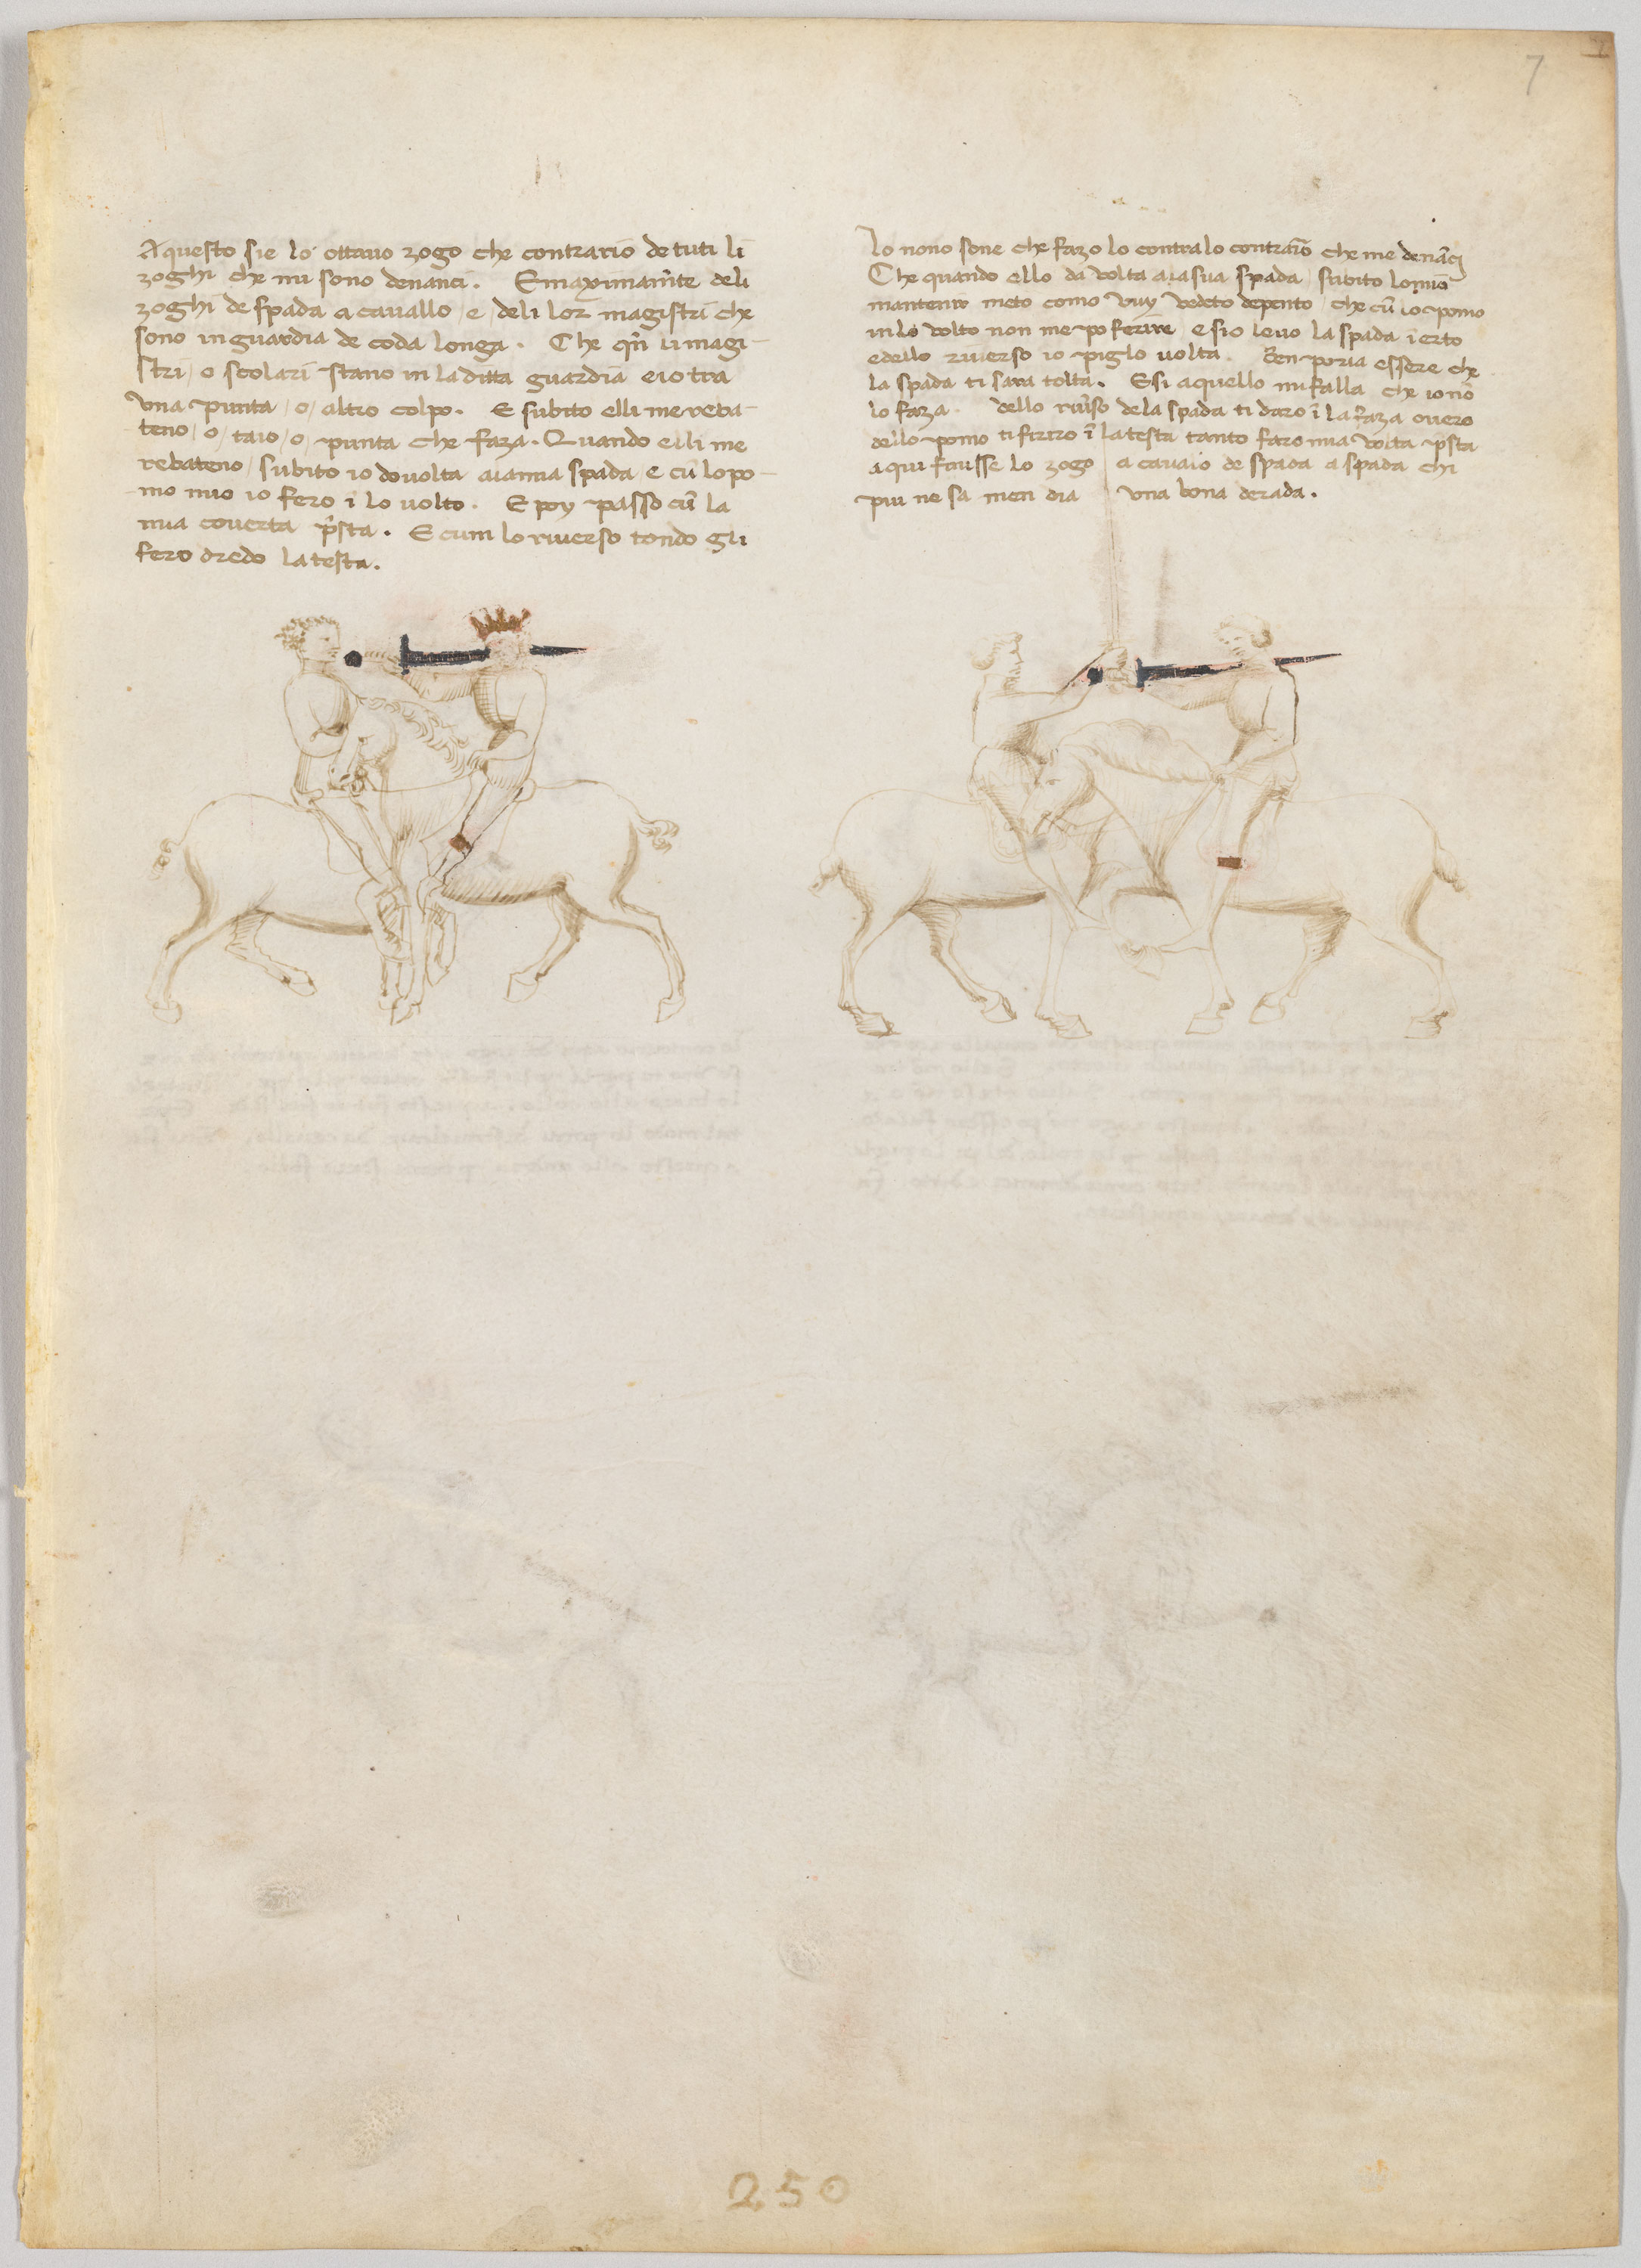 7
Aquesto sie lo ottauo zogo che contrario de tuti li
zoghi che mi sono denanci. E maximam̃te deli
zoghi de spada a cauallo e deli lor magistri che
sono in guardia de coda longa. Che qñ li magi-
stri / o scolari stano in la ditta guardia e io tra
una punta / o / altro colpo. E subito elli me reba-
teno / o / taio / o punta che faza. Quando elli me
rebateno / subito io do uolta a la mia spada e cū lo po-
mo mio io fero ī lo uolto. E poy passo cū la
mia couerta p̃sta. E cum lo riuerso tondo gli
fero dredo la testa.
Io nono sone che fazo lo contra lo contraīo che me denāci
Che quando ello da uolta a la sua spada / subito lo mio
mantenir meto como vuy vedeto depento che cū lo pomo
in lo volto non me po ferire e sio leuo la spada ī erto
e dello riuerso io piglo uolta. Ben poria essere che
la spada ti sara tolta. E si aquello mi falla che io nō
lo faza. dello riũso dela spada ti daro ī la faza ouero
dello pomo ti feriro ī la testa tanto faro mia volta p̃sta
aqui finisse lo zogo a cauaio de spada a spada chi
piu ne sa men dia una bona derada.
250